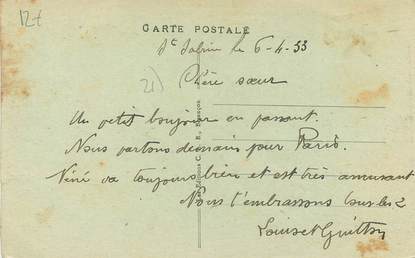 12f
CARTE POSTALE
St Salvin le 6-4-33
21)
Chère sœur
Un petit bonjour en passant.
Nous partons demain pour Paris.
Néné va toujours bien et est très amusant
Nous t'embrassons tous les 2
Louise et